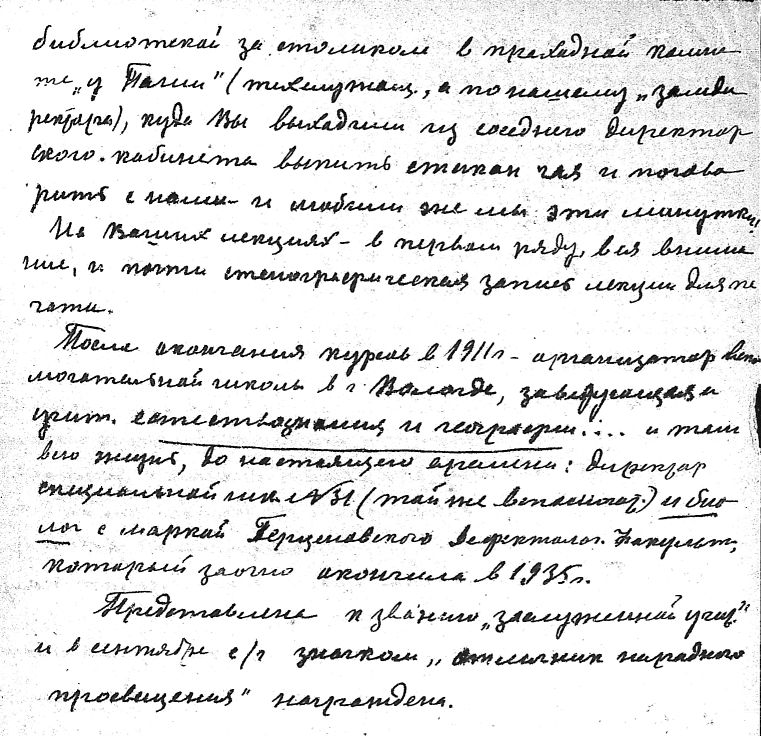 библиотекой за столиком в проходной комна
те „у Паши" (техслужащ., а по нашему „замди
ректора), куда Вы выходили из соседнего директор
ского кабинета выпить стакан чая и погово
рить с нами - и любили же мы эти минутки!
На Ваших лекциях - в первом ряду, вся внима
ние, и почти стенографическая запись лекции для пе
чати.
После окончания курсов в 1911 г - организатор вспо
могательной школы в г Вологде, заведующая и
учит. естествознания и географии.... и так
всю жизнь, до настоящего времени: директор
специальной шк. №1 (той же вспомогат.) и био
лог с маркой Герценовского Дефектолог. Факульт.,
который заочно окончила в 1935 г.
Представлена к званию „заслуженной учит."
и в сентябре с/г значком „отличник народного
просвещения" награждена.